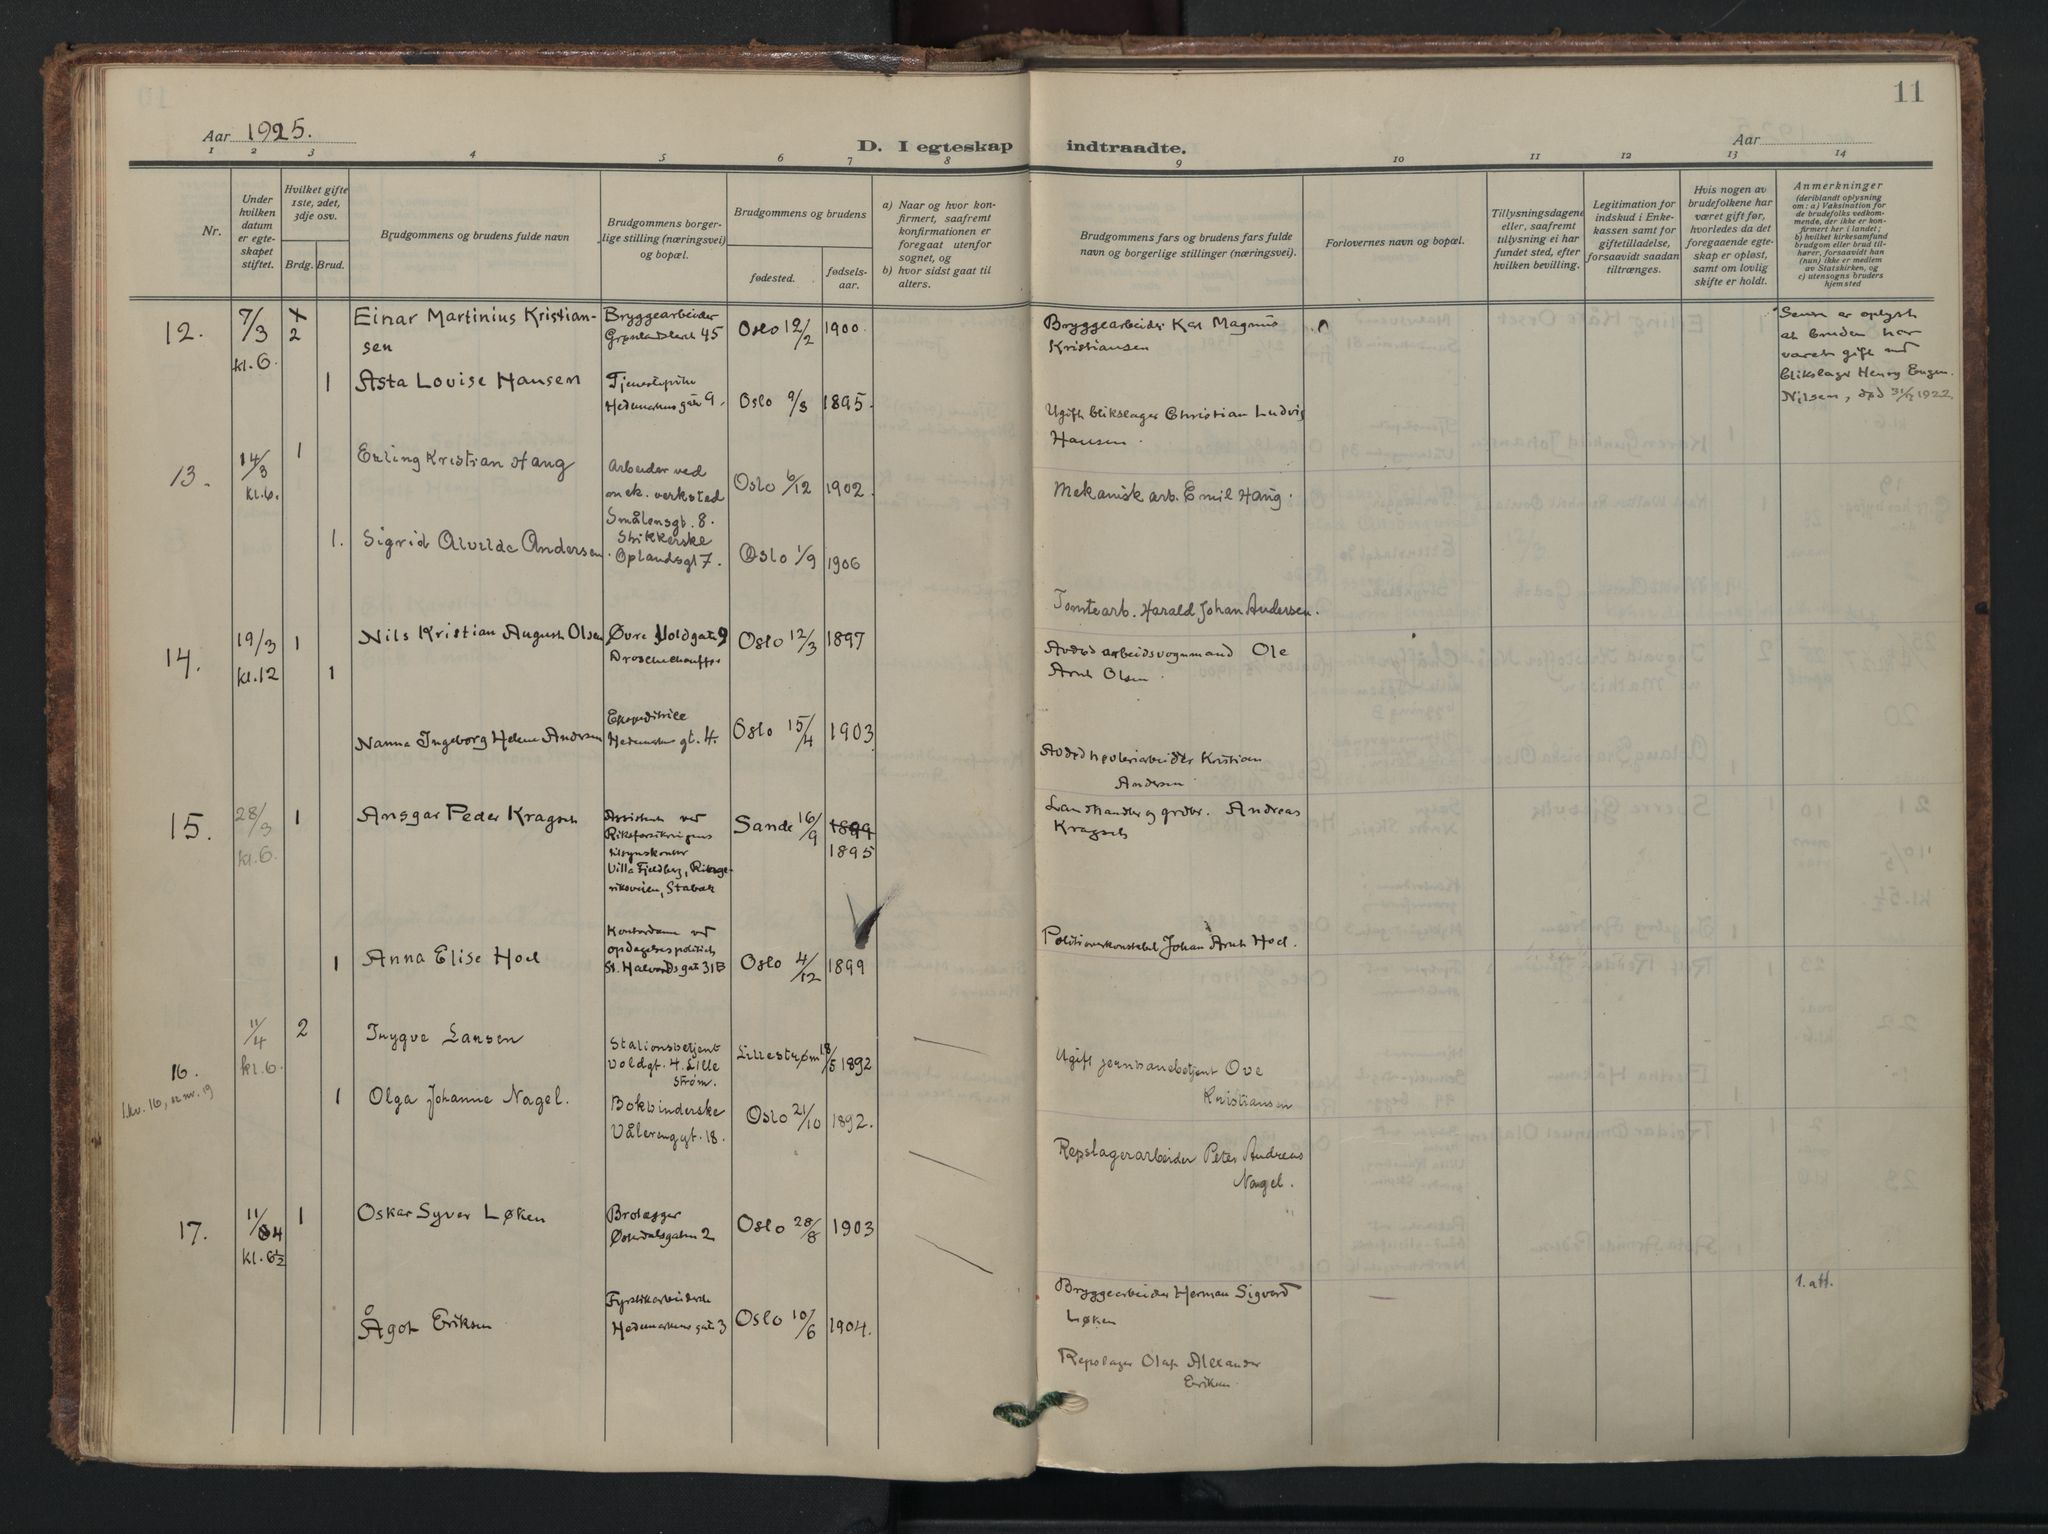 11
Aar 1925.
D. I egteskap indtraadte.
Aar
1 2 3 4 5 6 7 8 9 10 11 12 13 14
Nr.
Under hvilken datum er egte-skapet stiftet.
Hvilket gifte 1ste, 2det, 3dje osv.
Brdg. Brud.
Brudgommens og brudens fulde navn
Brudgommens borger-lige stilling (næringsvei) og bopæl.
Brudgommens og brudens
fødested.
fødsels-aar.
a) Naar og hvor kon-firmert, saafremt konfirmationen er foregaat utenfor sognet, og
b) hvor sidst gaat til alters.
Brudgommens fars og brudens fars fulde navn og borgerlige stillinger (næringsvei).
Forlovernes navn og bopæl.
Tillysningsdagene eller, saafremt tillysning ei har fundet sted, efter hvilken bevilling.
Legitimation for indskud i Enke-kassen samt for giftetilladelse, forsaavidt saadan tiltrænges.
Hvis nogen av brudefolkene har været gift før, hvorledes da det foregaaende egte-skap er opløst, samt om lovlig skifte er holdt.
Anmerkninger
(deriblandt oplysning om: a) Vaksination for de brudefolks vedkom-mende, der ikke er kon-firmert her i landet; b) hvilket kirkesamfund brudgom eller brud til-hører, forsaavidt han (hun) ikke er medlem av Statskirken, og c) utensogns bruders hjemsted
12. 7/3 kl. 6. 2
Einar Martinius Kristian-
sen
Bryggearbeider
45
Oslo 12/2 1900.
Bryggearbeider Karl Magnus
Kristiansen
Senere er oplyst
at bruden har
været gift med
blikslager Henry
Nilsen, død 1922.
1 Asta Lovise Hansen
Hedemarkens gate 9.
Oslo 9/3 1895.
Ugift blikslager Christian Ludvig
Hansen.
13. 14/3 kl. 6. 1
Erling Kristian Haug
Arbeider ved
mek. verksted
Smålensgt. 8.
Oslo 6/12 1902.
Mekanisk arb. Emil Haug.
1. Sigrid Alvilde Andersen
Strikkerske
Oplandsgt 7.
Oslo 1/9 1906
Tomtearb. Harald Johan Andersen.
14. 19/3 kl. 12 1
Nils Kristian August Olsen
Øvre Voldgate 9
Droschechauffør
Oslo 12/3 1897
Avdød arbeidsvognmand Ole
Arnt Olsen.
1
Nanna Ingeborg Helene Andersen
Ekspeditrice
Hedemarkens gt. 4.
Oslo 15/4 1903
Kristian
Andersen
15. 28/3 kl. 6. 1
Ansgar Peder Kragsch
Assistent ved
Riksforsikringens
tilsynskontor
Villa Fjeldberg, Ringe-
riksveien, Stabæk
Sande 16/9 1899
1895
Landhandler og grdbr. Andreas
Kragsch
1 Anna Elise Hoel
Kontordame ved
opdagelsespolitiet
St. Halvards gate 31B
Oslo 4/12 1899
Politioverkonstabel Johan Arnt Hoel.
16. 11/4 kl. 6. 2
Trygve Larsen
Stationsbetjent
Voldgt. 4. Lille
strøm.
Lillestrøm 18/5 1892
Ugift jernbanebetjent Ove
Kristiansen
nr. 19
1 Olga Johanne Nagel.
Bokbinderske
Vålerenggt. 18.
Oslo 21/10 1892.
Repslagerarbeider Peter Andreas
Nagel.
17. 11/4 kl. 6½ 1
Oskar Syver Løken
Brolægger
Østerdalsgaten 2
Oslo 28/8 1903
Bryggearbeider Herman Sigvard
Løken
1. att.
Ågot Eriksen
Fyrstikarbeiderske
Hedemarkens gate 3
Oslo 10/6 1904.
Repslager Olaf Alexander
Eriksen.